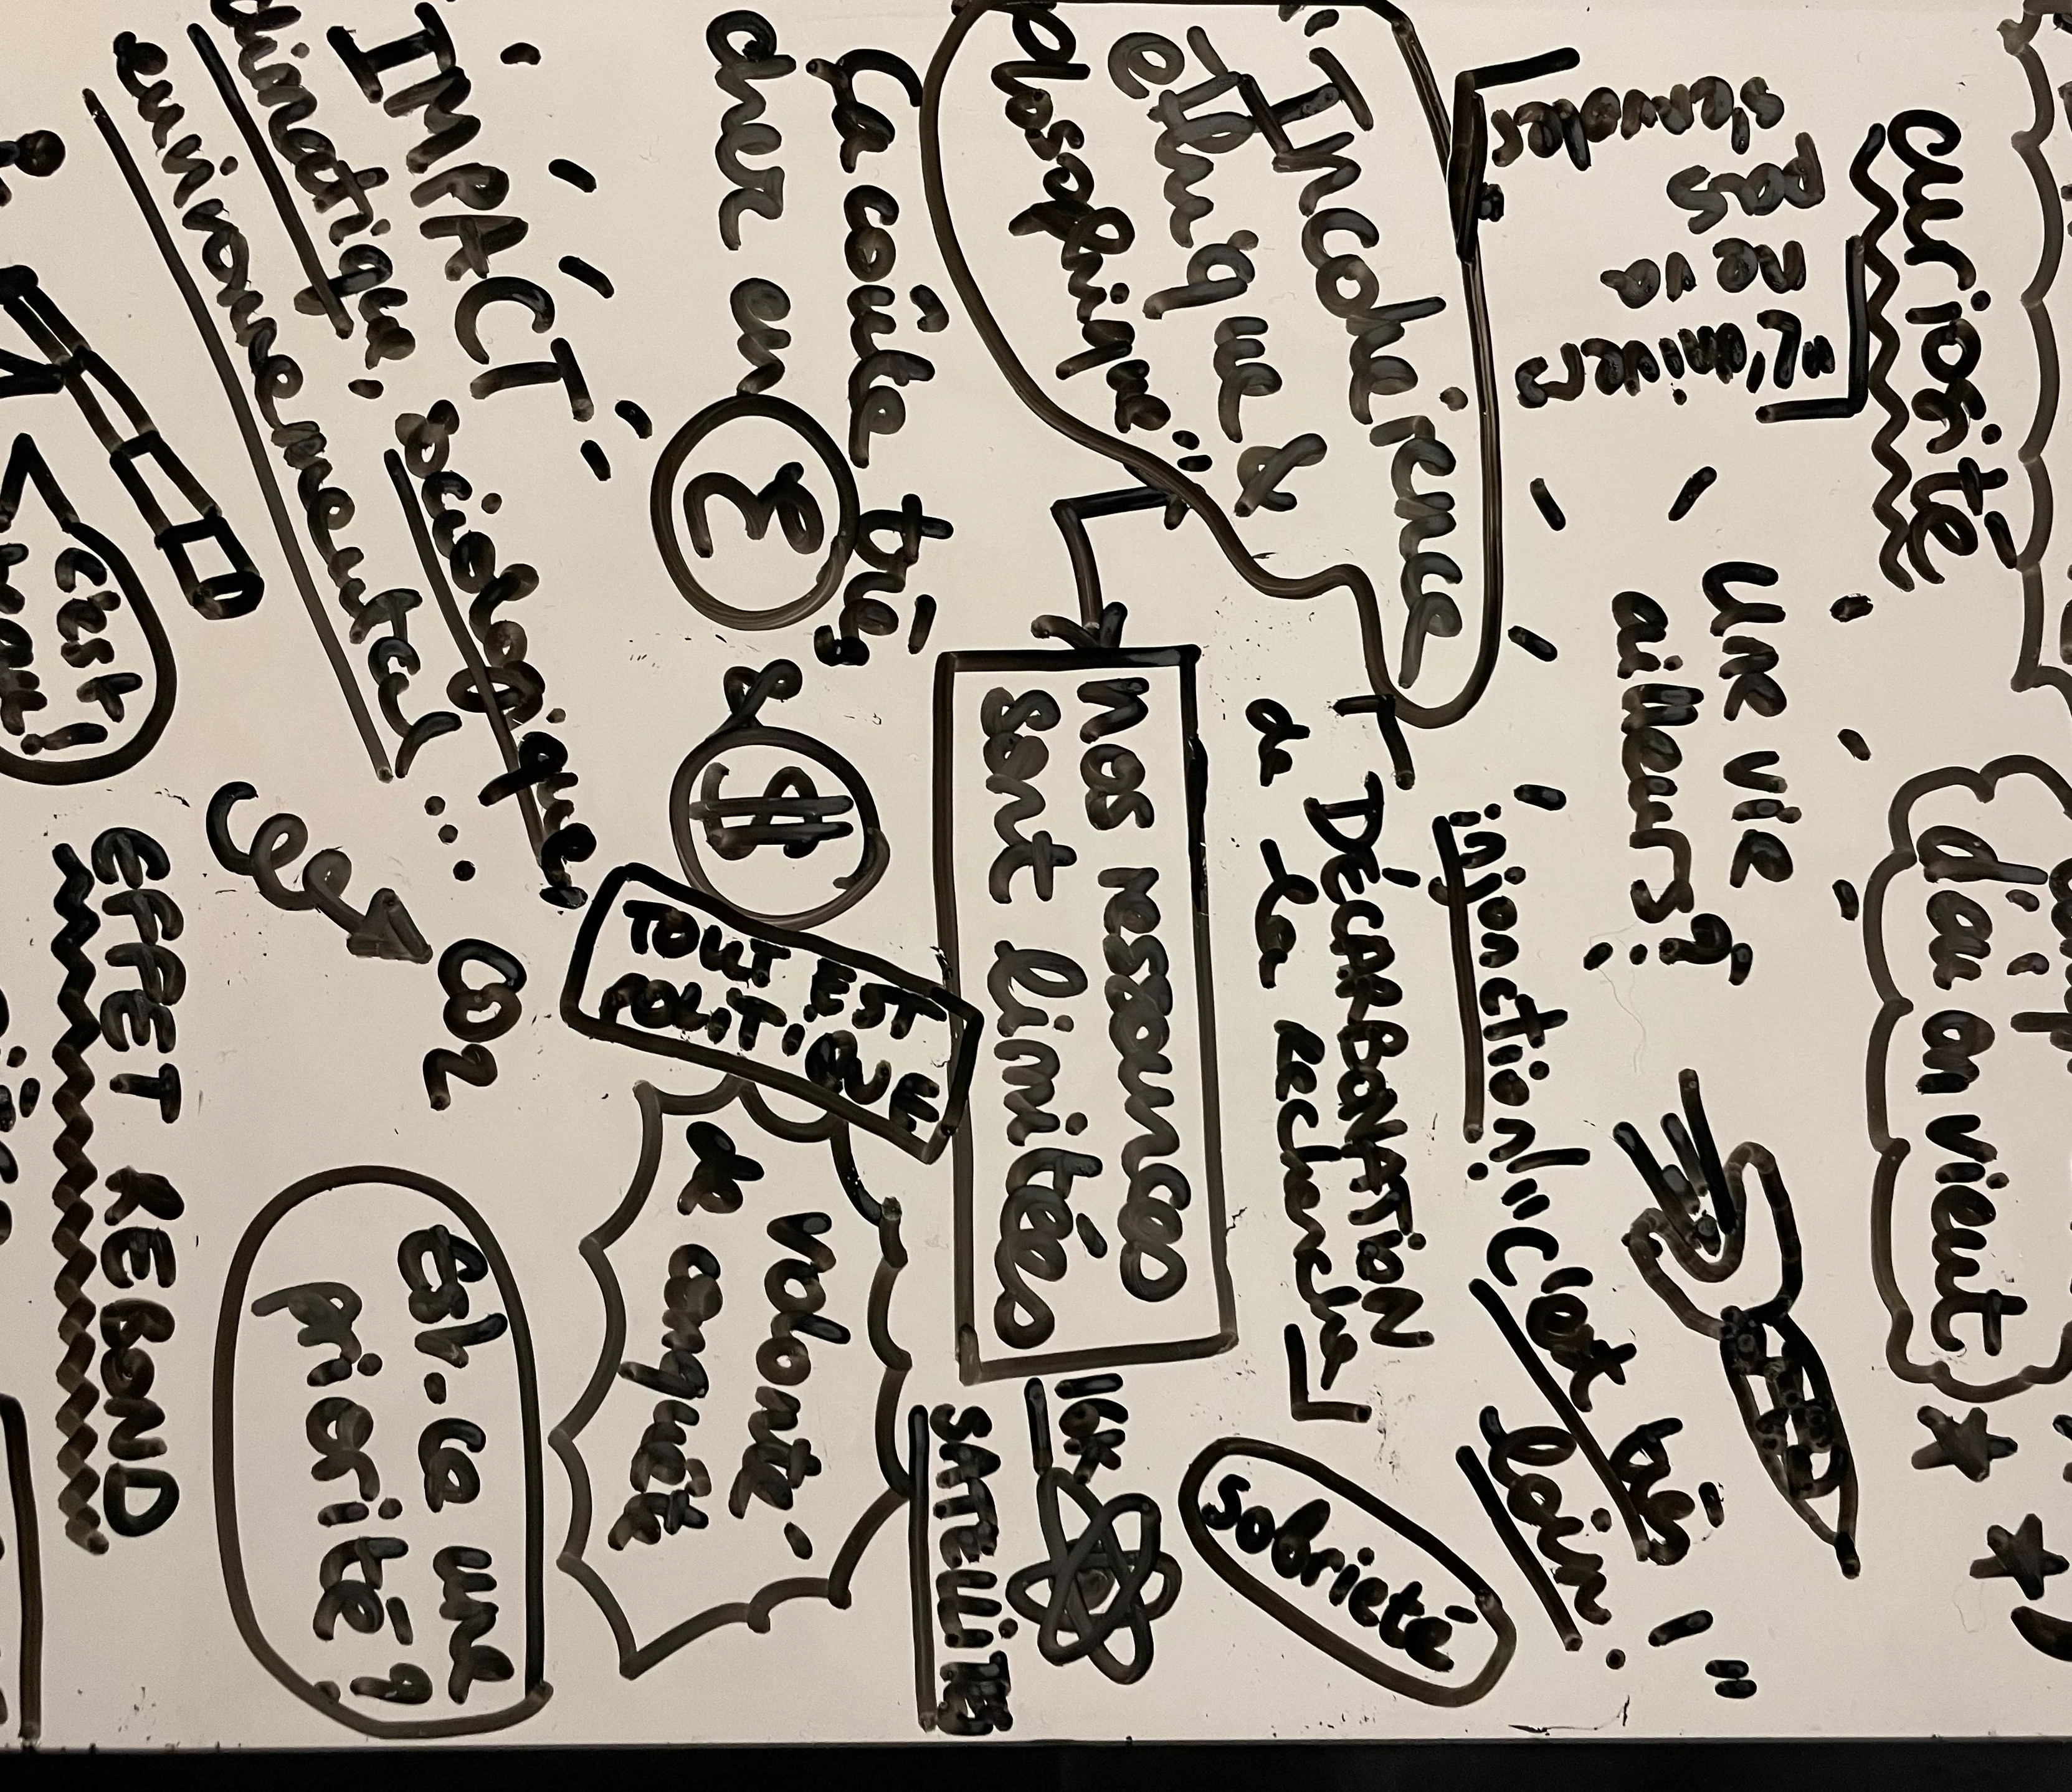 d'où on vient
curiosité
"L'univers
ne va
pas
s'envoler
une vie
ailleurs ?
"C'est très
loin !"
"injonction!"
"Incohérence
éthique &
philosophique"
DÉCARBONATION
de la recherche
sobriété
Nos ressources
sont limitées
16k
SATELLITES
ça coûte très
cher en € & $
TOUT EST
POLITIQUE
Volonté
de conquêt
IMPACT
sociologique,
climatique,
environnemental
...
CO2
Est-ce une
priorité ?
EFFET REBOND
c'est